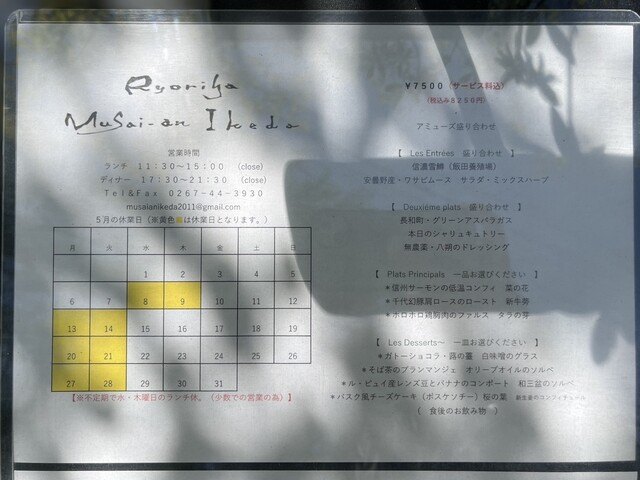 Ryoriya
Musai-an Ikeda
営業時間
ランチ 11:30～15:00 (close)
ディナー 17:30～21:30 (close)
Tel&Fax 0267-44-3930
musaianikeda2011@gmail.com
5月の休業日(※黄色■は休業日となります。)
月 火 水 木 金 土 日
1 2 3 4 5
6 7 8 9 10 11 12
13 14 15 16 17 18 19
20 21 22 23 24 25 26
27 28 29 30 31
【※不定期で水・木曜日のランチ休。(少数での営業の為)】
¥7500(サービス料込)
(税込み8250円)
アミューズ盛り合わせ
【 Les Entrées 盛り合わせ 】
信濃雪鱒(飯田養殖場)
安曇野産・ワサビムース サラダ・ミックスハーブ
【 Deuxième plats 盛り合わせ 】
長和町・グリーンアスパラガス
本日のシャリュキュトリー
無農薬・八朔のドレッシング
【 Plats Principals 一品お選びください 】
*信州サーモンの低温コンフィ 菜の花
*千代幻豚肩ロースのロースト 新牛蒡
*ホロホロ鶏胸肉のファルス タラの芽
【 Les Desserts～ 一皿お選びください 】
*ガトーショコラ・蕗の薹 白味噌のグラス
*そば茶のブランマンジェ オリーブオイルのソルベ
*ル・ピュイ産レンズ豆とバナナのコンポート 和三盆のソルベ
*バスク風チーズケーキ(ボスケソチー)桜の葉 新生姜のコンフィチュール
( 食後のお飲み物 )